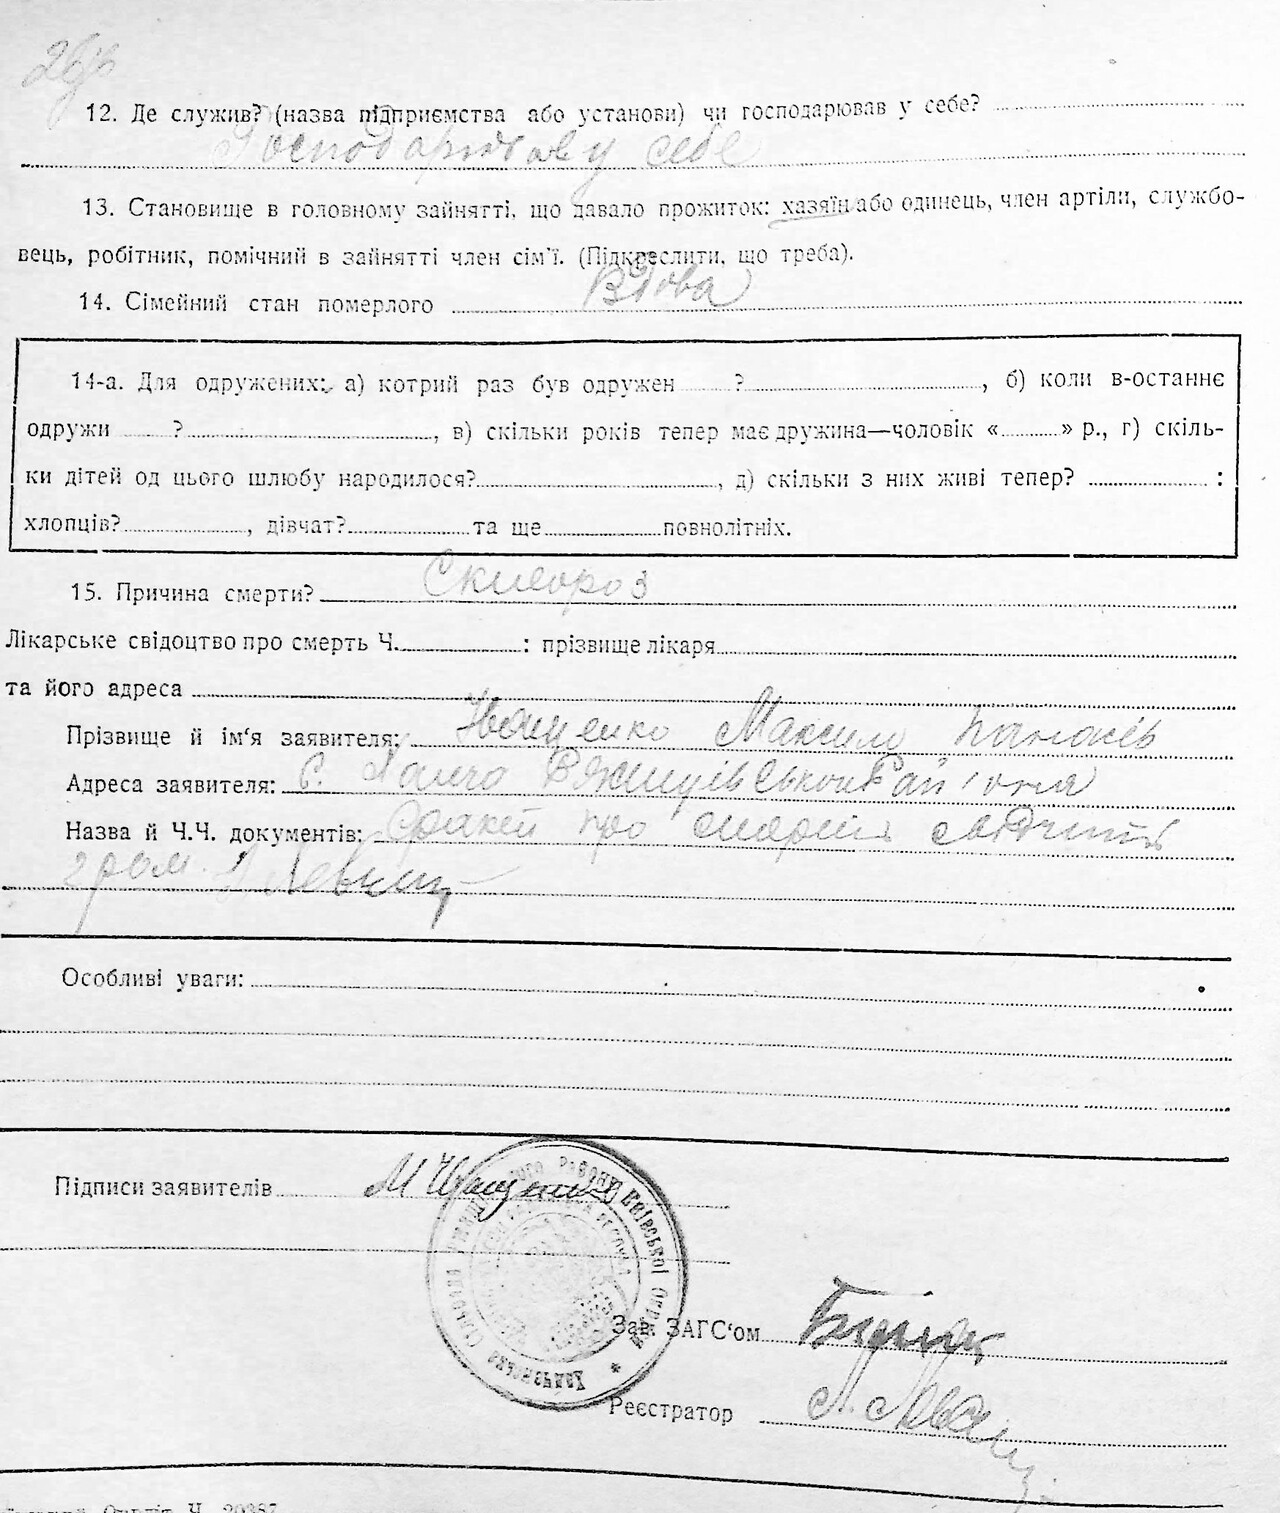 12. Де служив? (назва підприємства або установи) чи господарював у себе?
Господарював у себе
13. Становище в головному зайнятті, що давало прожиток: хазяїн або одинець, член артіли, службо-
вець, робітник, помічний в зайнятті член сім'ї. (Підкреслити, що треба).
14. Сімейний стан померлого Вдова
14-а. Для одружених: а) котрий раз був одружен ? , б) коли в-останнє
одружи ? , в) скільки років тепер має дружина—чоловік « » р., г) скіль-
ки дітей од цього шлюбу народилося? , д) скільки з них живі тепер? :
хлопців? , дівчат? та ще повнолітніх.
15. Причина смерти? Склероз
Лікарське свідоцтво про смерть Ч. : прізвище лікаря
та його адреса
Прізвище й ім'я заявителя: Іваненко Максим Панасів
Адреса заявителя: с.
Назва й Ч.Ч. документів: про
гром.
Особливі уваги:
Підписи заявителів
Київської
Зав. ЗАГС'ом
Реєстратор
Ч. 20387